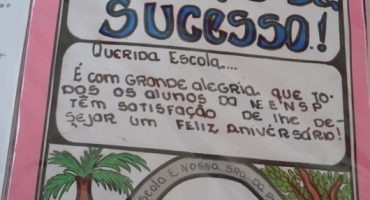 SUCESSO!
QUERIDA ESCOLA....
É COM GRANDE ALEGRIA, QUE TO-
DOS OS ALUNOS DA E E NSP
TÊM SATISFAÇÃO DE LHE DE-
SEJAR UM FELIZ ANIVERSÁRIO!
ESCOLA E NOSSA SRA. DA